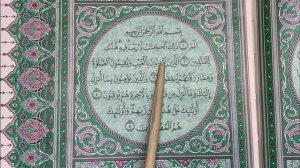 بِسْمِ اللَّهِ الرَّحْمَٰنِ الرَّحِيمِ
الٓمٓ ۝ ذَٰلِكَ الْكِتَٰبُ لَا رَيْبَ فِيهِ هُدًى
لِّلْمُتَّقِينَ ۝ الَّذِينَ يُؤْمِنُونَ بِالْغَيْبِ وَيُقِيمُونَ الصَّلَوٰةَ
وَمِمَّا رَزَقْنَٰهُمْ يُنفِقُونَ ۝ وَالَّذِينَ يُؤْمِنُونَ بِمَا أُنزِلَ
إِلَيْكَ وَمَا أُنزِلَ مِن وَبِالْءَاخِرَةِ هُمْ يُوقِنُونَ ۝
أُو۟لَٰٓئِكَ عَلَىٰ هُدًى مِّن رَّبِّهِمْ وَأُو۟لَٰٓئِكَ
هُمُ